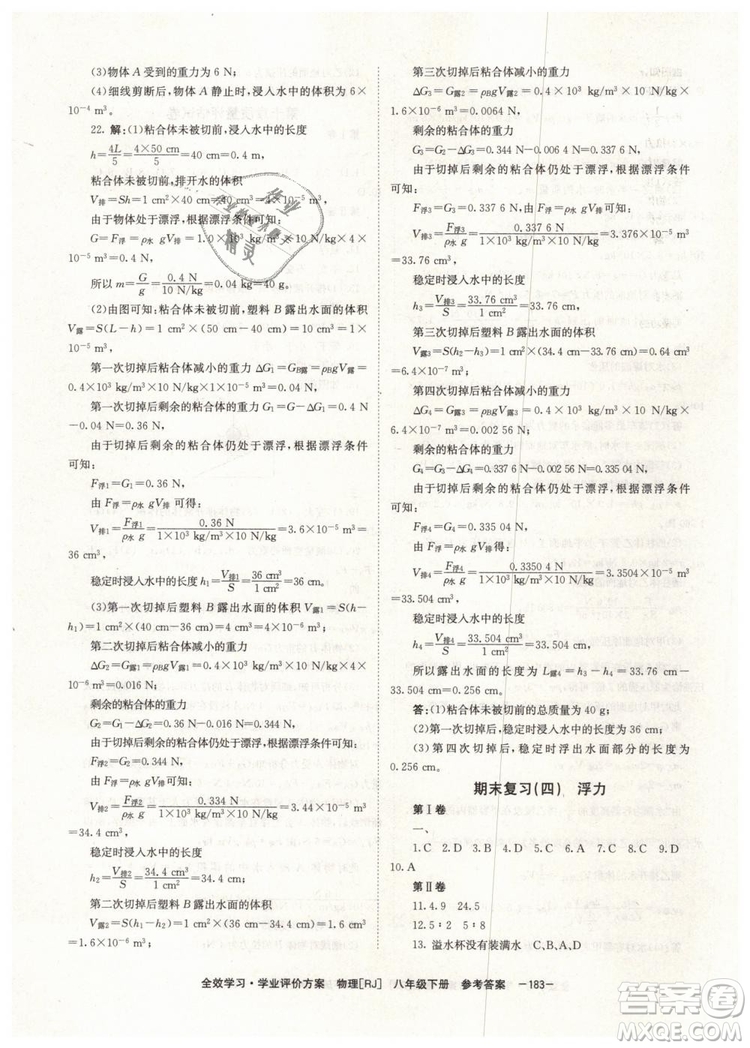 (3)物体 A 受到的重力为 6 N;
(4)细线剪断后,物体静止时,浸入水中的体积为 6×
10⁻⁴ m³。
22. 解:(1)粘合体未被切前,浸入水中的长度
h=4L/5=4×50 cm/5=40 cm=0.4 m,
粘合体未被切前,排开水的体积
V排=Sh=1 cm²×40 cm=40 cm³
由于物体处于漂浮,根据漂浮条件可知:
所以 m=G/g=0.4 N/10 N/kg=0.04 kg=40 g。
(2)由图可知:被切前,塑料 B 露出水面的体积
V露=S(L-h)=1 cm²×(50 cm-40 cm)=10 cm³
第一次切掉后粘合体减小的重力
第一次切掉后剩余的粘合体的重力 G₁=G-ΔG₁=0.4 N
-0.04 N=0.36 N,
由于切掉后剩余的粘合体仍处于漂浮,根据漂浮条件
可知:
F浮1=G₁=0.36 N,
由 F浮=ρ水 gV排 可得:
V排1=F浮1/ρ水g=0.36 N/1×10³ kg/m³×10 N/kg=3.6×10⁻⁵ m³=
36 cm³,
稳定时浸入水中的长度 h₁=V排1/S=36 cm³/1 cm²=36 cm。
(3)第一次切掉后塑料 B 露出水面的体积 V露1=S(h-
h₁)=1 cm²×(40 cm-36 cm)=4 cm³=4×10⁻⁶ m³
第二次切掉后粘合体减小的重力
ΔG₂=G露1=0.4×10³ kg/m³×10 N/kg×4×10⁻⁶ m³
=0.016 N
剩余的粘合体的重力
G₂=G₁-ΔG₂=0.36 N-0.016 N=0.344 N
由于切掉后剩余的粘合体仍处于漂浮,根据漂浮条件
可知:
由 F浮=ρ水 gV排 可得:
=34.4 cm³
稳定时浸入水中的长度
h₂=V排2/S=34.4 cm³/1 cm²=34.4 cm,
第二次切掉后塑料 B 露出水面的体积
V露2=S(h₁-h₂)=1 cm²×(36 cm-34.4 cm)=1.6 cm³
=1.6×10⁻⁶ m³;
第三次切掉后粘合体减小的重力
ΔG₃=G露2=0.4×10³ kg/m³×10 N/kg×
1.6×10⁻⁶ m³=0.006 4 N
剩余的粘合体的重力
G₃=G₂-ΔG₃=0.344 N-0.006 4 N=0.337 6 N
由于切掉后剩余的粘合体仍处于漂浮,根据漂浮条件
可知:
F浮3=G₃=0.337 6 N,
由 F浮=ρ水 gV排 可得:
V排3=F浮3/ρ水g=0.337 6 N/1×10³ kg/m³×10 N/kg=3.376×10⁻⁵ m³=
33.76 cm³
稳定时浸入水中的长度
h₃=V排3/S=33.76 cm³/1 cm²=33.76 cm
第三次切掉后塑料 B 露出水面的体积
V露3=S(h₂-h₃)=1 cm²×(34.4 cm-33.76 cm)=0.64 cm³=
6.4×10⁻⁷ m³;
第四次切掉后粘合体减小的重力
ΔG₄=G露3=0.4×10³ kg/m³×10 N/kg×
6.4×10⁻⁷ m³=0.002 56 N
剩余的粘合体的重力
G₄=G₃-ΔG₄=0.337 6 N-0.002 56 N=0.335 04 N
由于切掉后剩余的粘合体仍处于漂浮,根据漂浮条件
可知:
F浮4=G₄=0.335 04 N,
由 F浮=ρ水 gV排 可得:
V排4=F浮4/ρ水g=0.3350 4 N/1×10³ kg/m³×10 N/kg=3.3504×10⁻⁵ m³
=33.504 cm³,
稳定时浸入水中的长度
h₄=V排4/S=33.504 cm³/1 cm²=33.504 cm,
所以露出水面的长度 L露4=h₃-h₄=33.76 cm-
33.504 cm=0.256 cm。
答:(1)粘合体未被切前的总质量为 40 g;
(2)第一次切掉后,稳定时浸入水中的长度为 36 cm;
(3)第四次切掉后,稳定时浮出水面部分的长度为
0.256 cm。
期末复习(四) 浮力
第Ⅰ卷
一、
1. C 2. D 3. D 4. D 5. C 6. A 7. C 8. C 9. D
10. A
第Ⅱ卷
11. 4.9 24.5
12. 5∶2 5∶8
13. 溢水杯没有装满水 C,B,A,D
全效学习·学业评价方案 物理[RJ] 八年级下册 参考答案 —183—
MXQE.COM